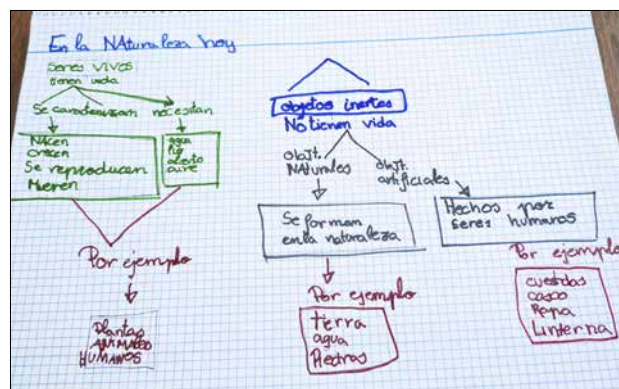 En la NAturaleza hay
Seres VIVOS
tienen vida
Se caracterizan
necesitan
NAcen
crecen
Se reproducen
Mueren
agua
luz
aire
Por ejemplo
Plantas
ANIMALES
HUMANOS
objetos inertes
No tienen vida
objt.
NAturales
objt.
artificiales
Se forman
en la naturaleza
Hechos por
seres humanos
Por ejemplo
tierra
agua
Piedras
Por ejemplo
cuerdas
casco
Ropa
Linterna